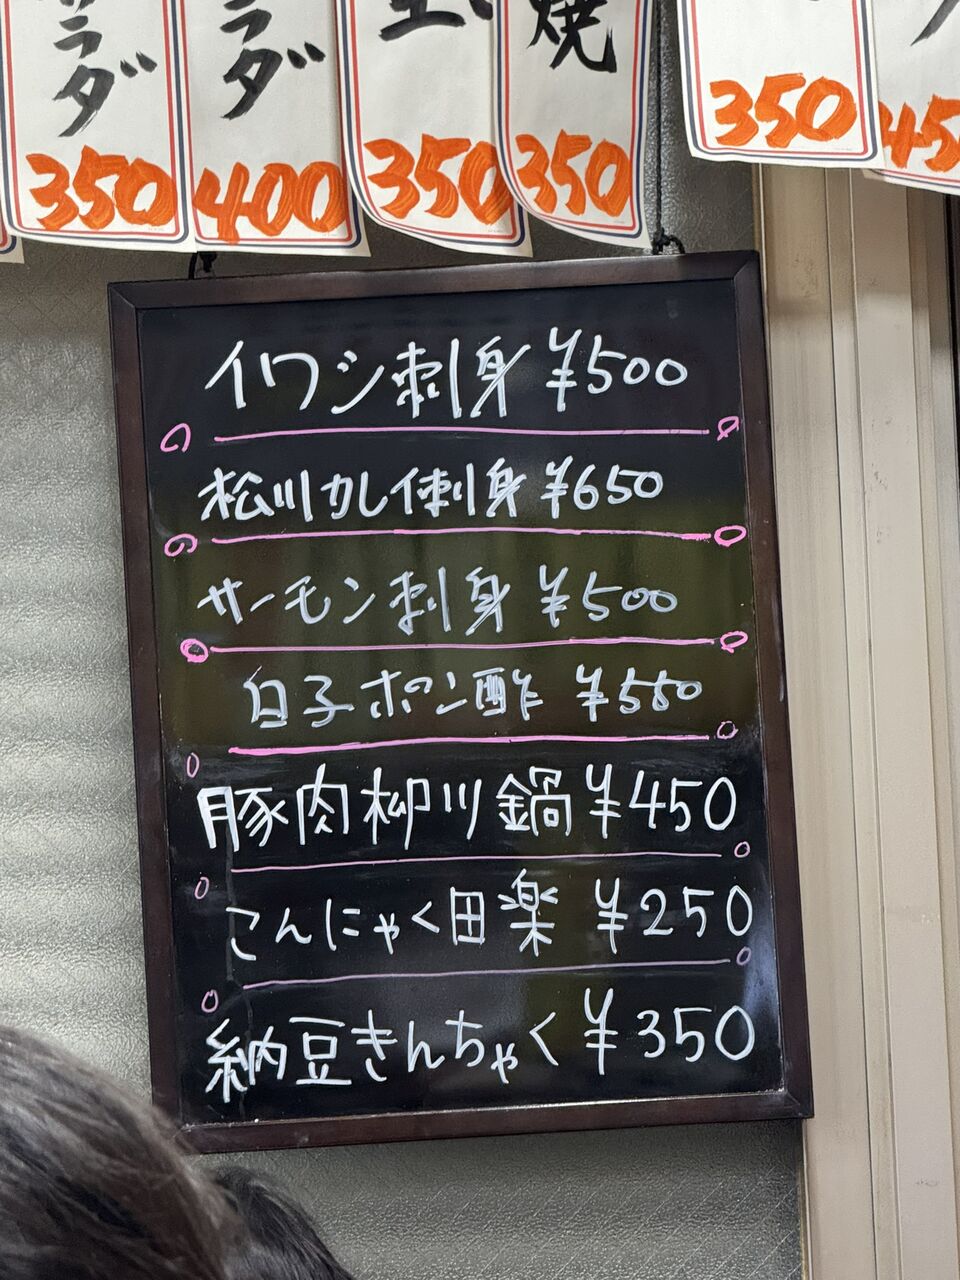 ラダ
350
ラダ
400
350
焼
350
350
45
イワシ刺身 ¥500
松川カレイ刺身 ¥650
サーモン刺身 ¥500
白子ポン酢 ¥550
豚肉柳川鍋 ¥450
こんにゃく田楽 ¥250
納豆きんちゃく ¥350